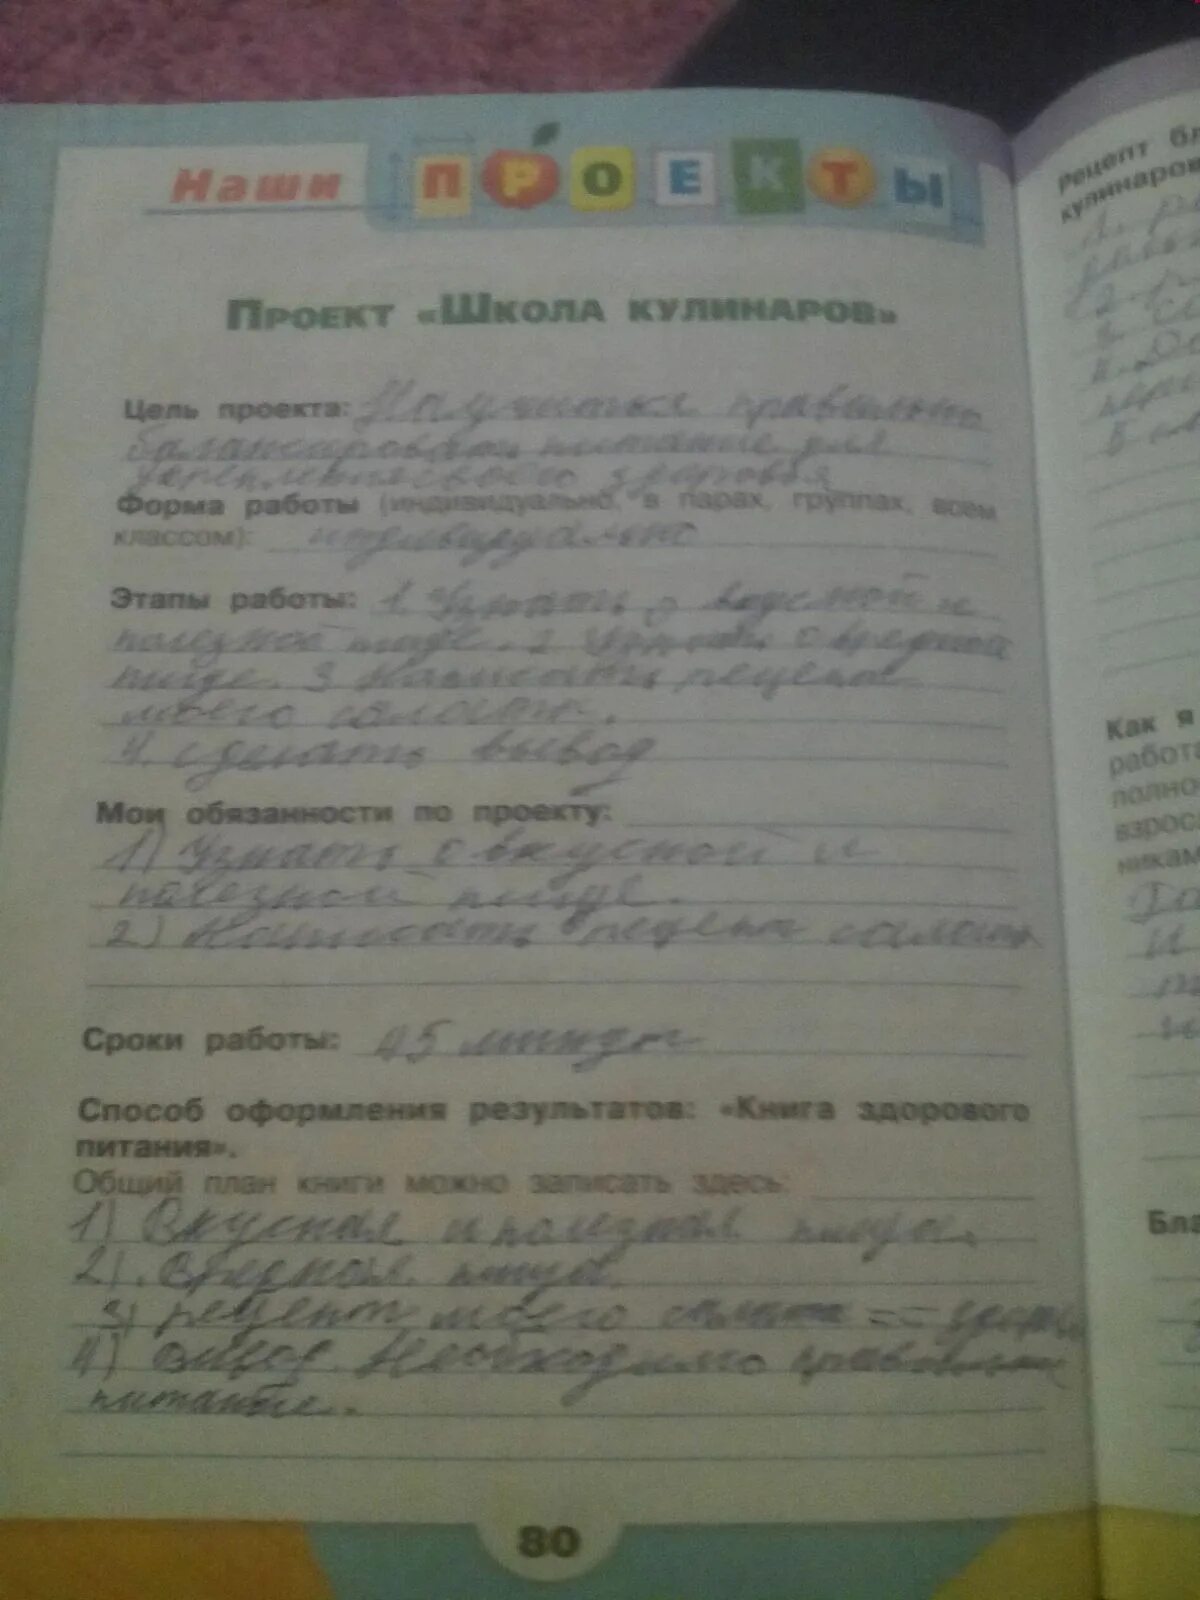 Наши ПРОЕКТЫ
Проект «Школа кулинаров»
Цель проекта: Научиться правильно
балансировать питание для
укрепления своего здоровья
Форма работы (индивидуально, в парах, группах, всем
классом): индивидуально
Этапы работы: 1. Узнать о вкусной и
полезной пище. 2 Узнать о вредной
пище. 3 Написать рецепт
моего салата.
4. сделать вывод
Мои обязанности по проекту:
1) Узнать о вкусной и
полезной пище.
2) Написать рецепт салата
Сроки работы: 45 минут
Способ оформления результатов: «Книга здорового
питания».
Общий план книги можно записать здесь:
1) Вкусная и полезная пища.
2). Вредная пища.
3) рецепт моего салата
4) вывод. Необходимо правильное
питание.
80
Рецепт
кулинаров
Как я
работа
полно
взрос
никам